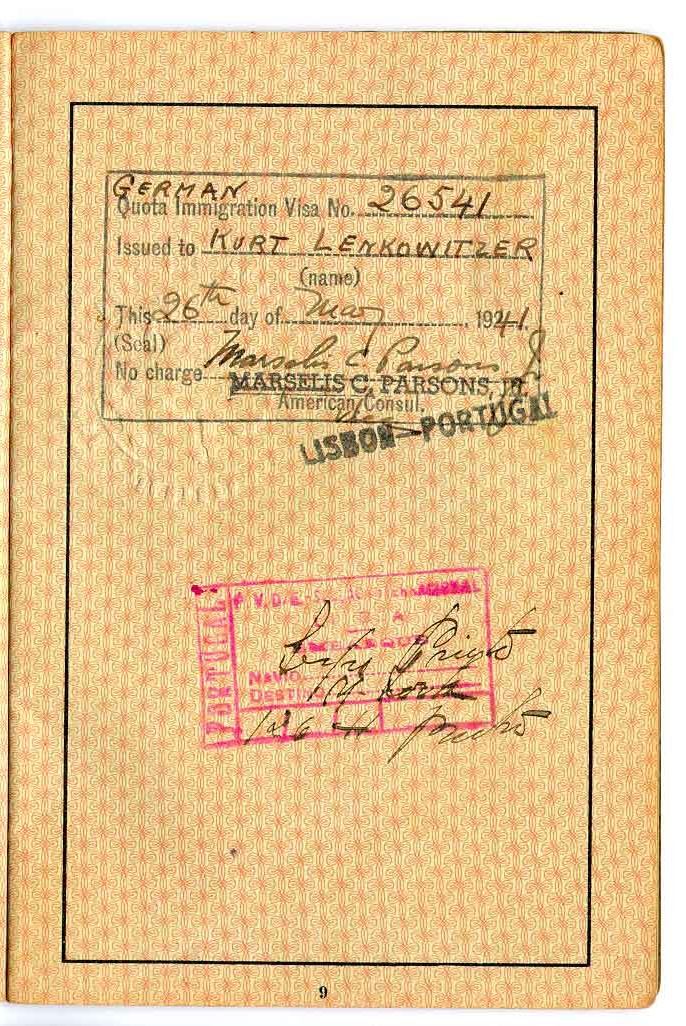 GERMAN
Quota Immigration Visa No. 26541
Issued to KURT LENKOWITZER
(name)
This 26th day of May, 1941.
(Seal)
No charge Marselis C Parsons Jr
MARSELIS C. PARSONS, JR
American Consul.
LISBON-PORTUGAL
PORTUGAL
P.V.D.E.
EMBARQUE
NAVIO
DESTI
9